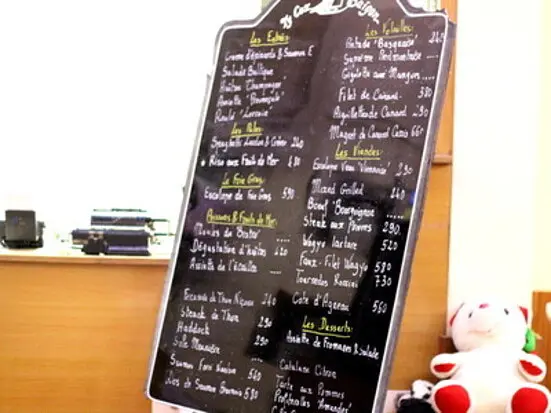 Ty Coz Saigon
Les Entrées
Crème d'épinards & Saumon F
Salade Baltique
Huîtres Champagne
Assiette "Provençale"
Roulé "Lorraine"
Les Pâtes
Spaghetti Lardon & Crème 240
Riso aux Fruits de Mer 480
Le Foie Gras
Escalope de Foie Gras 590
Poissons & Fruits de Mer
Moules du Bistro .....
Dégustation d'huîtres 420
Assiette de l'écailler .....
de Thon Niçoise 240
Steack de Thon 290
Haddock
Sole Meunière 290
Saumon 560
Dos de Saumon 580
Les Volailles
Pintade "Basquaise" 240
Suprême Piedmontaise ....
Gigolette aux Mangues ....
Filet de Canard 380
Aiguillettes de Canard 290
Magret de Canard Cassis 660
Les Viandes
Escalope Veau "Viennoise" 290
Mixed Grilled 240
Boeuf "Bourguignon" .....
Steak aux Poivres 290
Wagyu Tartare 520
Faux-Filet Wagyu 580
Tournedos Rossini 730
Côte d'Agneau 560
Les Desserts
Assiette de Fromages & Salade
Catalane Citron
Tarte aux Pommes
Profiteroles "Amandes"